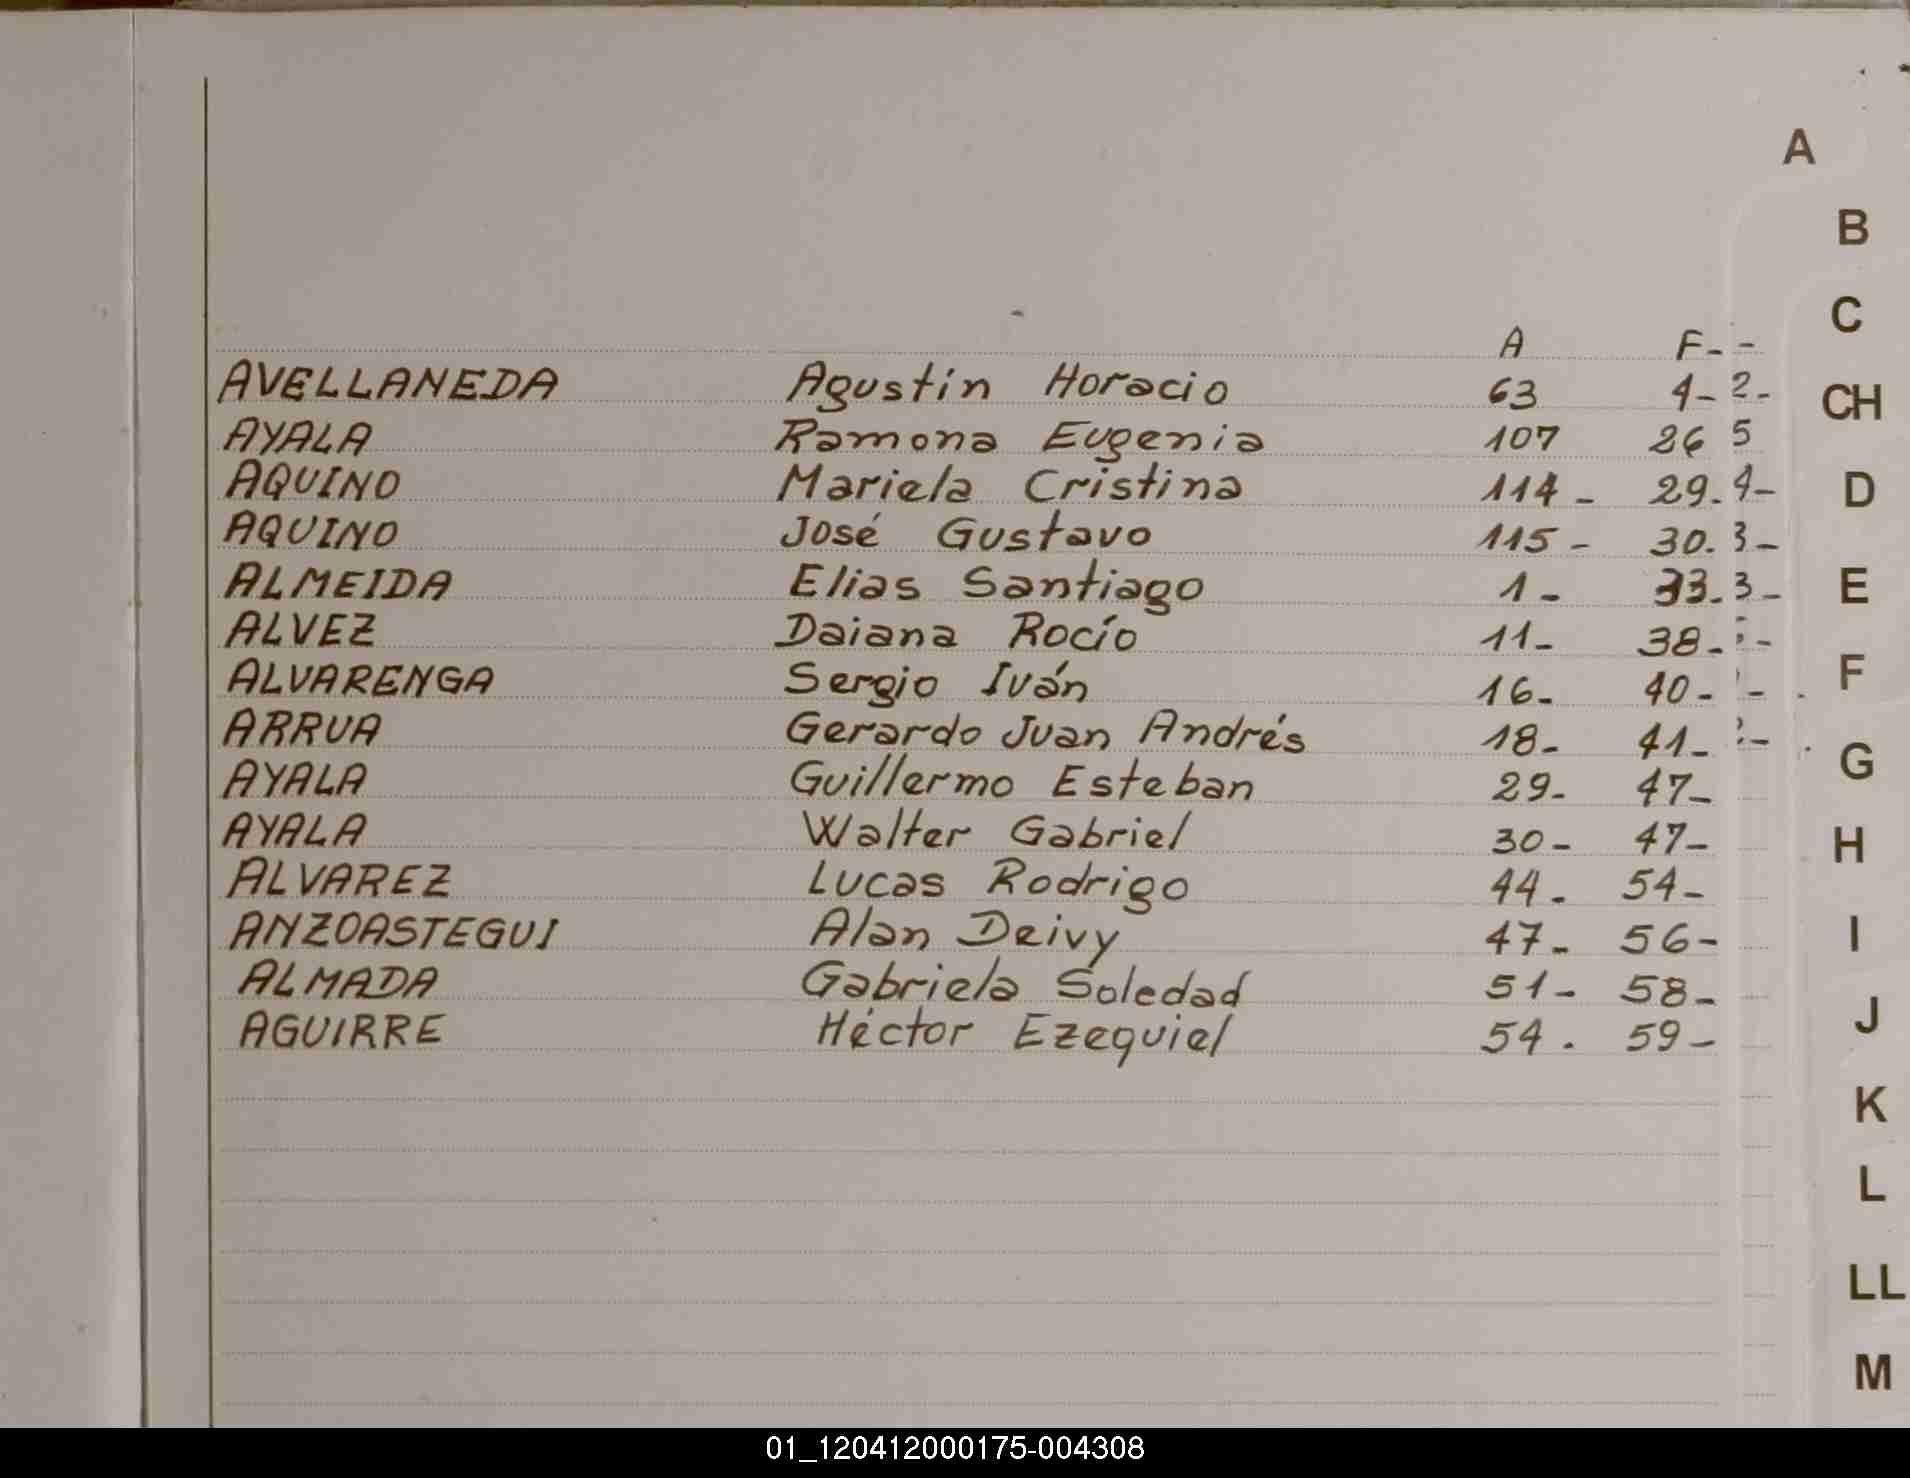 A
B
C
A F- -
AVELLANEDA Agustín Horacio 63 4- 2-
CH
AYALA Ramona Eugenia 107 26 5
AQUINO Mariela Cristina 114 - 29. 4-
D
AQUINO José Gustavo 115 - 30. 3-
ALMEIDA Elias Santiago 1 - 33. 3-
E
ALVEZ Daiana Rocío 11- 38-
ALVARENGA Sergio Iván 16- 40-
F
ARRUA Gerardo Juan Andrés 18- 41-
G
AYALA Guillermo Esteban 29- 47-
AYALA Walter Gabriel 30- 47-
H
ALVAREZ Lucas Rodrigo 44- 54-
ANZOASTEGUI Alan Deivy 47- 56-
I
ALMADA Gabriela Soledad 51- 58-
J
AGUIRRE Héctor Ezequiel 54. 59-
K
L
LL
M
01_120412000175-004308